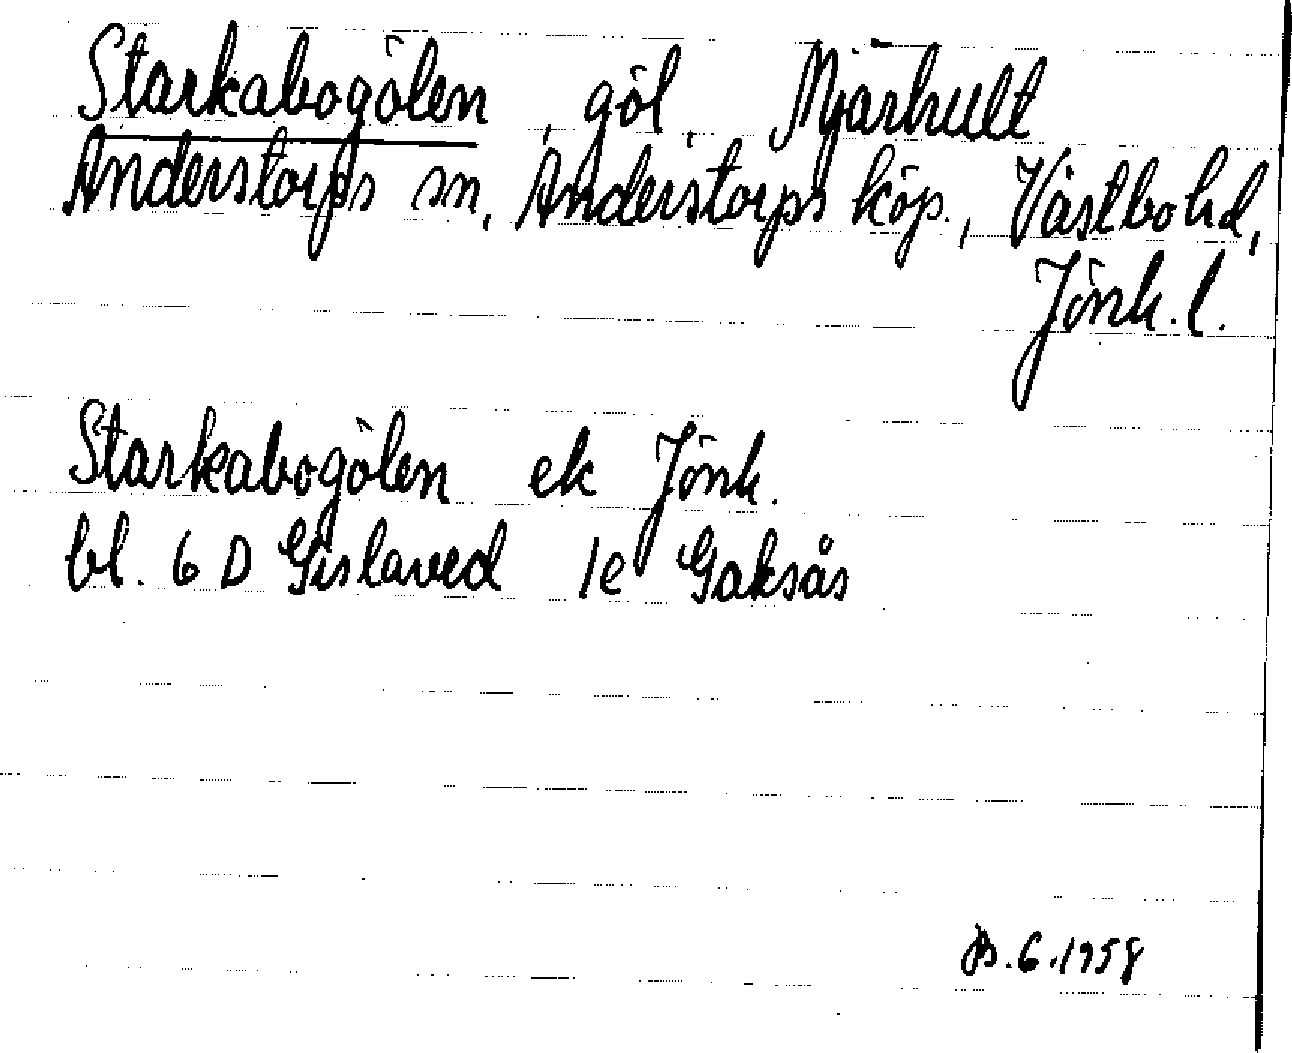 Starkabogölen, göl, Mjärhult
Anderstorps sn, Anderstorps köp., Västbo hd,
Jönk. l.
Starkabogölen ek Jönk.
bl. 6 D Gislaved 1e Gaksås
6.1958